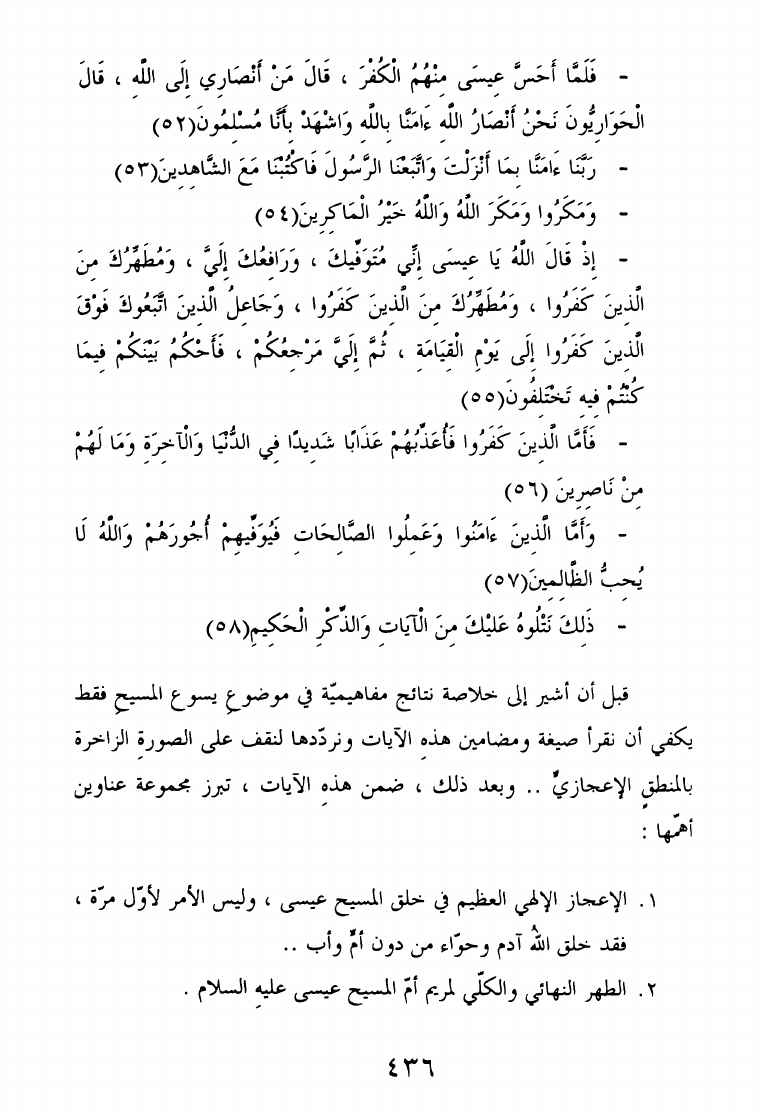 - فَلَمَّا أَحَسَّ عِيسَى مِنْهُمُ الْكُفْرَ ، قَالَ مَنْ أَنْصَارِي إِلَى اللَّهِ ، قَالَ
الْحَوَارِيُّونَ نَحْنُ أَنْصَارُ اللَّهِ ءَامَنَّا بِاللَّهِ وَاشْهَدْ بِأَنَّا مُسْلِمُونَ(٥٢)
- رَبَّنَا ءَامَنَّا بِمَا أَنْزَلْتَ وَاتَّبَعْنَا الرَّسُولَ فَاكْتُبْنَا مَعَ الشَّاهِدِينَ(٥٣)
- وَمَكَرُوا وَمَكَرَ اللَّهُ وَاللَّهُ خَيْرُ الْمَاكِرِينَ(٥٤)
- إِذْ قَالَ اللَّهُ يَا عِيسَى إِنِّي مُتَوَفِّيكَ ، وَرَافِعُكَ إِلَيَّ ، وَمُطَهِّرُكَ مِنَ
الَّذِينَ كَفَرُوا ، وَمُطَهِّرُكَ مِنَ الَّذِينَ كَفَرُوا ، وَجَاعِلُ الَّذِينَ اتَّبَعُوكَ فَوْقَ
الَّذِينَ كَفَرُوا إِلَى يَوْمِ الْقِيَامَةِ ، ثُمَّ إِلَيَّ مَرْجِعُكُمْ ، فَأَحْكُمُ بَيْنَكُمْ فِيمَا
كُنْتُمْ فِيهِ تَخْتَلِفُونَ(٥٥)
- فَأَمَّا الَّذِينَ كَفَرُوا فَأُعَذِّبُهُمْ عَذَابًا شَدِيدًا فِي الدُّنْيَا وَالْآخِرَةِ وَمَا لَهُمْ
مِنْ نَاصِرِينَ (٥٦)
- وَأَمَّا الَّذِينَ ءَامَنُوا وَعَمِلُوا الصَّالِحَاتِ فَيُوَفِّيهِمْ أُجُورَهُمْ وَاللَّهُ لَا
يُحِبُّ الظَّالِمِينَ(٥٧)
- ذَلِكَ نَتْلُوهُ عَلَيْكَ مِنَ الْآيَاتِ وَالذِّكْرِ الْحَكِيمِ(٥٨)
قبل أن أشير إلى خلاصة نتائج مفاهيميّة في موضوعِ يسوع المسيحِ فقط
يكفي أن نقرأ صيغة ومضامين هذهِ الآيات ونردّدها لنقف على الصورةِ الزاخرة
بالمنطقِ الإعجازيٍّ .. وبعد ذلك ، ضمن هذهِ الآيات ، تبرز مجموعة عناوين
أهمّها :
١. الإعجاز الإلهي العظيم في خلق المسيح عيسى ، وليس الأمر لأوّل مرّة ،
فقد خلق اللهُ آدم وحوّاء من دون أمٍّ وأب ..
٢. الطهر النهائي والكلّي لمريم أمّ المسيح عيسى عليهِ السلام .
٤٣٦